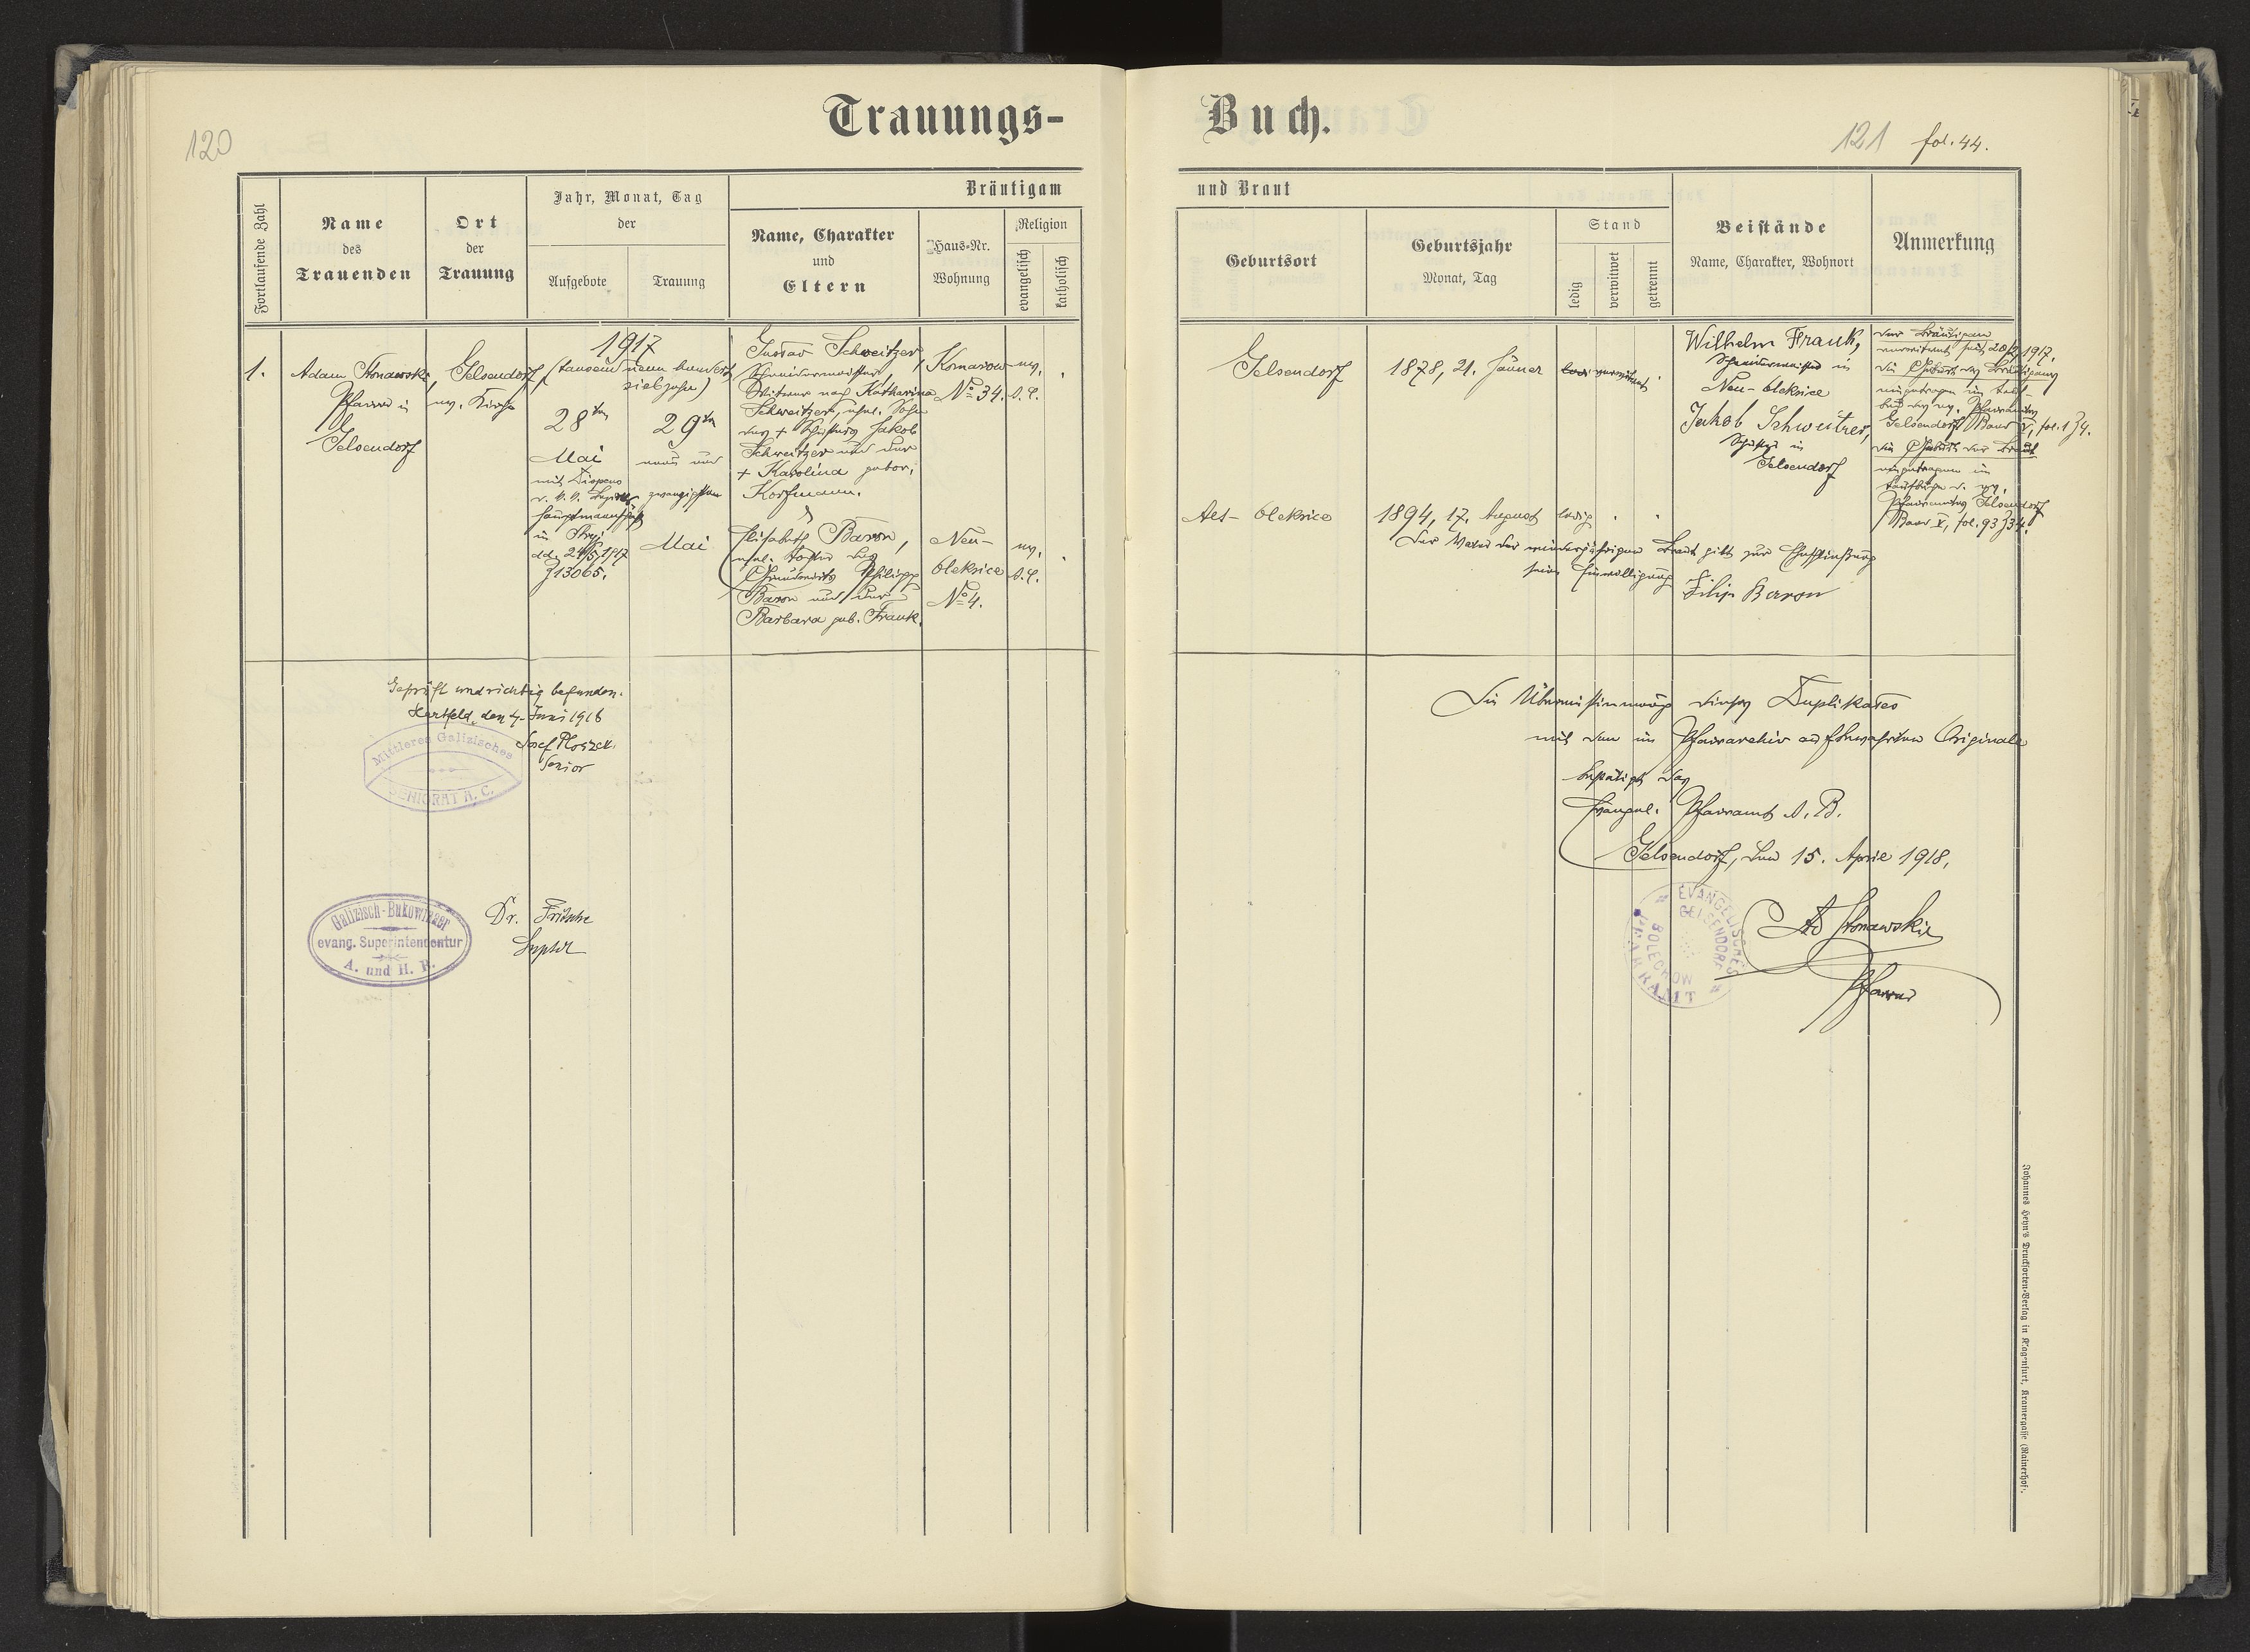 120
Trauungs-
Buch.
121 fol. 44.
Fortlaufende Zahl
Name
des
Trauenden
Ort
der
Trauung
Jahr, Monat, Tag
der
Aufgebote
Trauung
Bräutigam
Name, Charakter
und
Eltern
Haus-Nr.
Wohnung
Religion
evangelisch
katholisch
und Braut
Geburtsort
Geburtsjahr
Monat, Tag
Stand
ledig
verwitwet
getrennt
Beistände
Name, Charakter, Wohnort
Anmerkung
1.
Adam Stonawski
Pfarrer in
Gelsendorf
Gelsendorf,
ev. Kirche
1917
(tausend neun hundert
siebzehn)
28ten
Mai
mit Dispens
d. k. k. Bezirks-
hauptmannschaft
in Stryj
dd. 24/5 1917
Z 13065.
29ten
neun und
zwanzigsten
Mai
Gustav Schweitzer,
Schneidermeister,
Witwer nach Katharina
Schweitzer, ehel. Sohn
des + Jakob
Schweitzer und der
+ Karolina gebor.
Korfmann.
Komarow
No 34.
ev.
A. C.
Elisabeth Baron,
ehel. Tochter des
Grundwirts Philipp
Baron und der
Barbara geb. Frank.
Neu-
Oleksice
No 4.
ev.
A. C.
Gelsendorf
1878, 21. Jänner
verwitwet
Wilhelm Frank,
Schneidermeister in
Neu-Oleksice
Jakob Schweitzer,
in
Gelsendorf
Der Bräutigam
verwitwet seit 1917.
Die Geburt des Bräutigams
eingetragen im Tauf-
buch des ev. Pfarramtes
Gelsendorf Band V, fol. 1 Z 4.
Die Geburt der Braut
eingetragen im
Taufbuche d. ev.
Pfarramtes Gelsendorf
Band V, fol. 93 Z 34.
Alt-Oleksice
1894, 17. August
ledig
Der Vater der minderjährigen Braut gibt zur Eheschließung
seine Einwilligung
Filip Baron
Geprüft und richtig befunden.
Hartfeld, den 4. Juni 1918
Josef Ploszek.
Senior
Mittleres Galizisches
SENIORAT A. C.
Galizisch-Bukowinaer
evang. Superintendentur
A. und H. B.
Dr. Fritsche
Supdt
Die Übereinstimmung dieses Duplikates
mit dem im Pfarrarchiv aufbewahrten Originale
bestätigt das
Evangel. Pfarramt A. B.
Gelsendorf, den 15. April 1918.
EVANGELISCHES
PFARRAMT
GELSENDORF
BOLECHOW
Ad Stonawski
Pfarrer
Johannes Heyn's Drucksorten-Verlag in Klagenfurt, Kramergasse (Rainerhof).